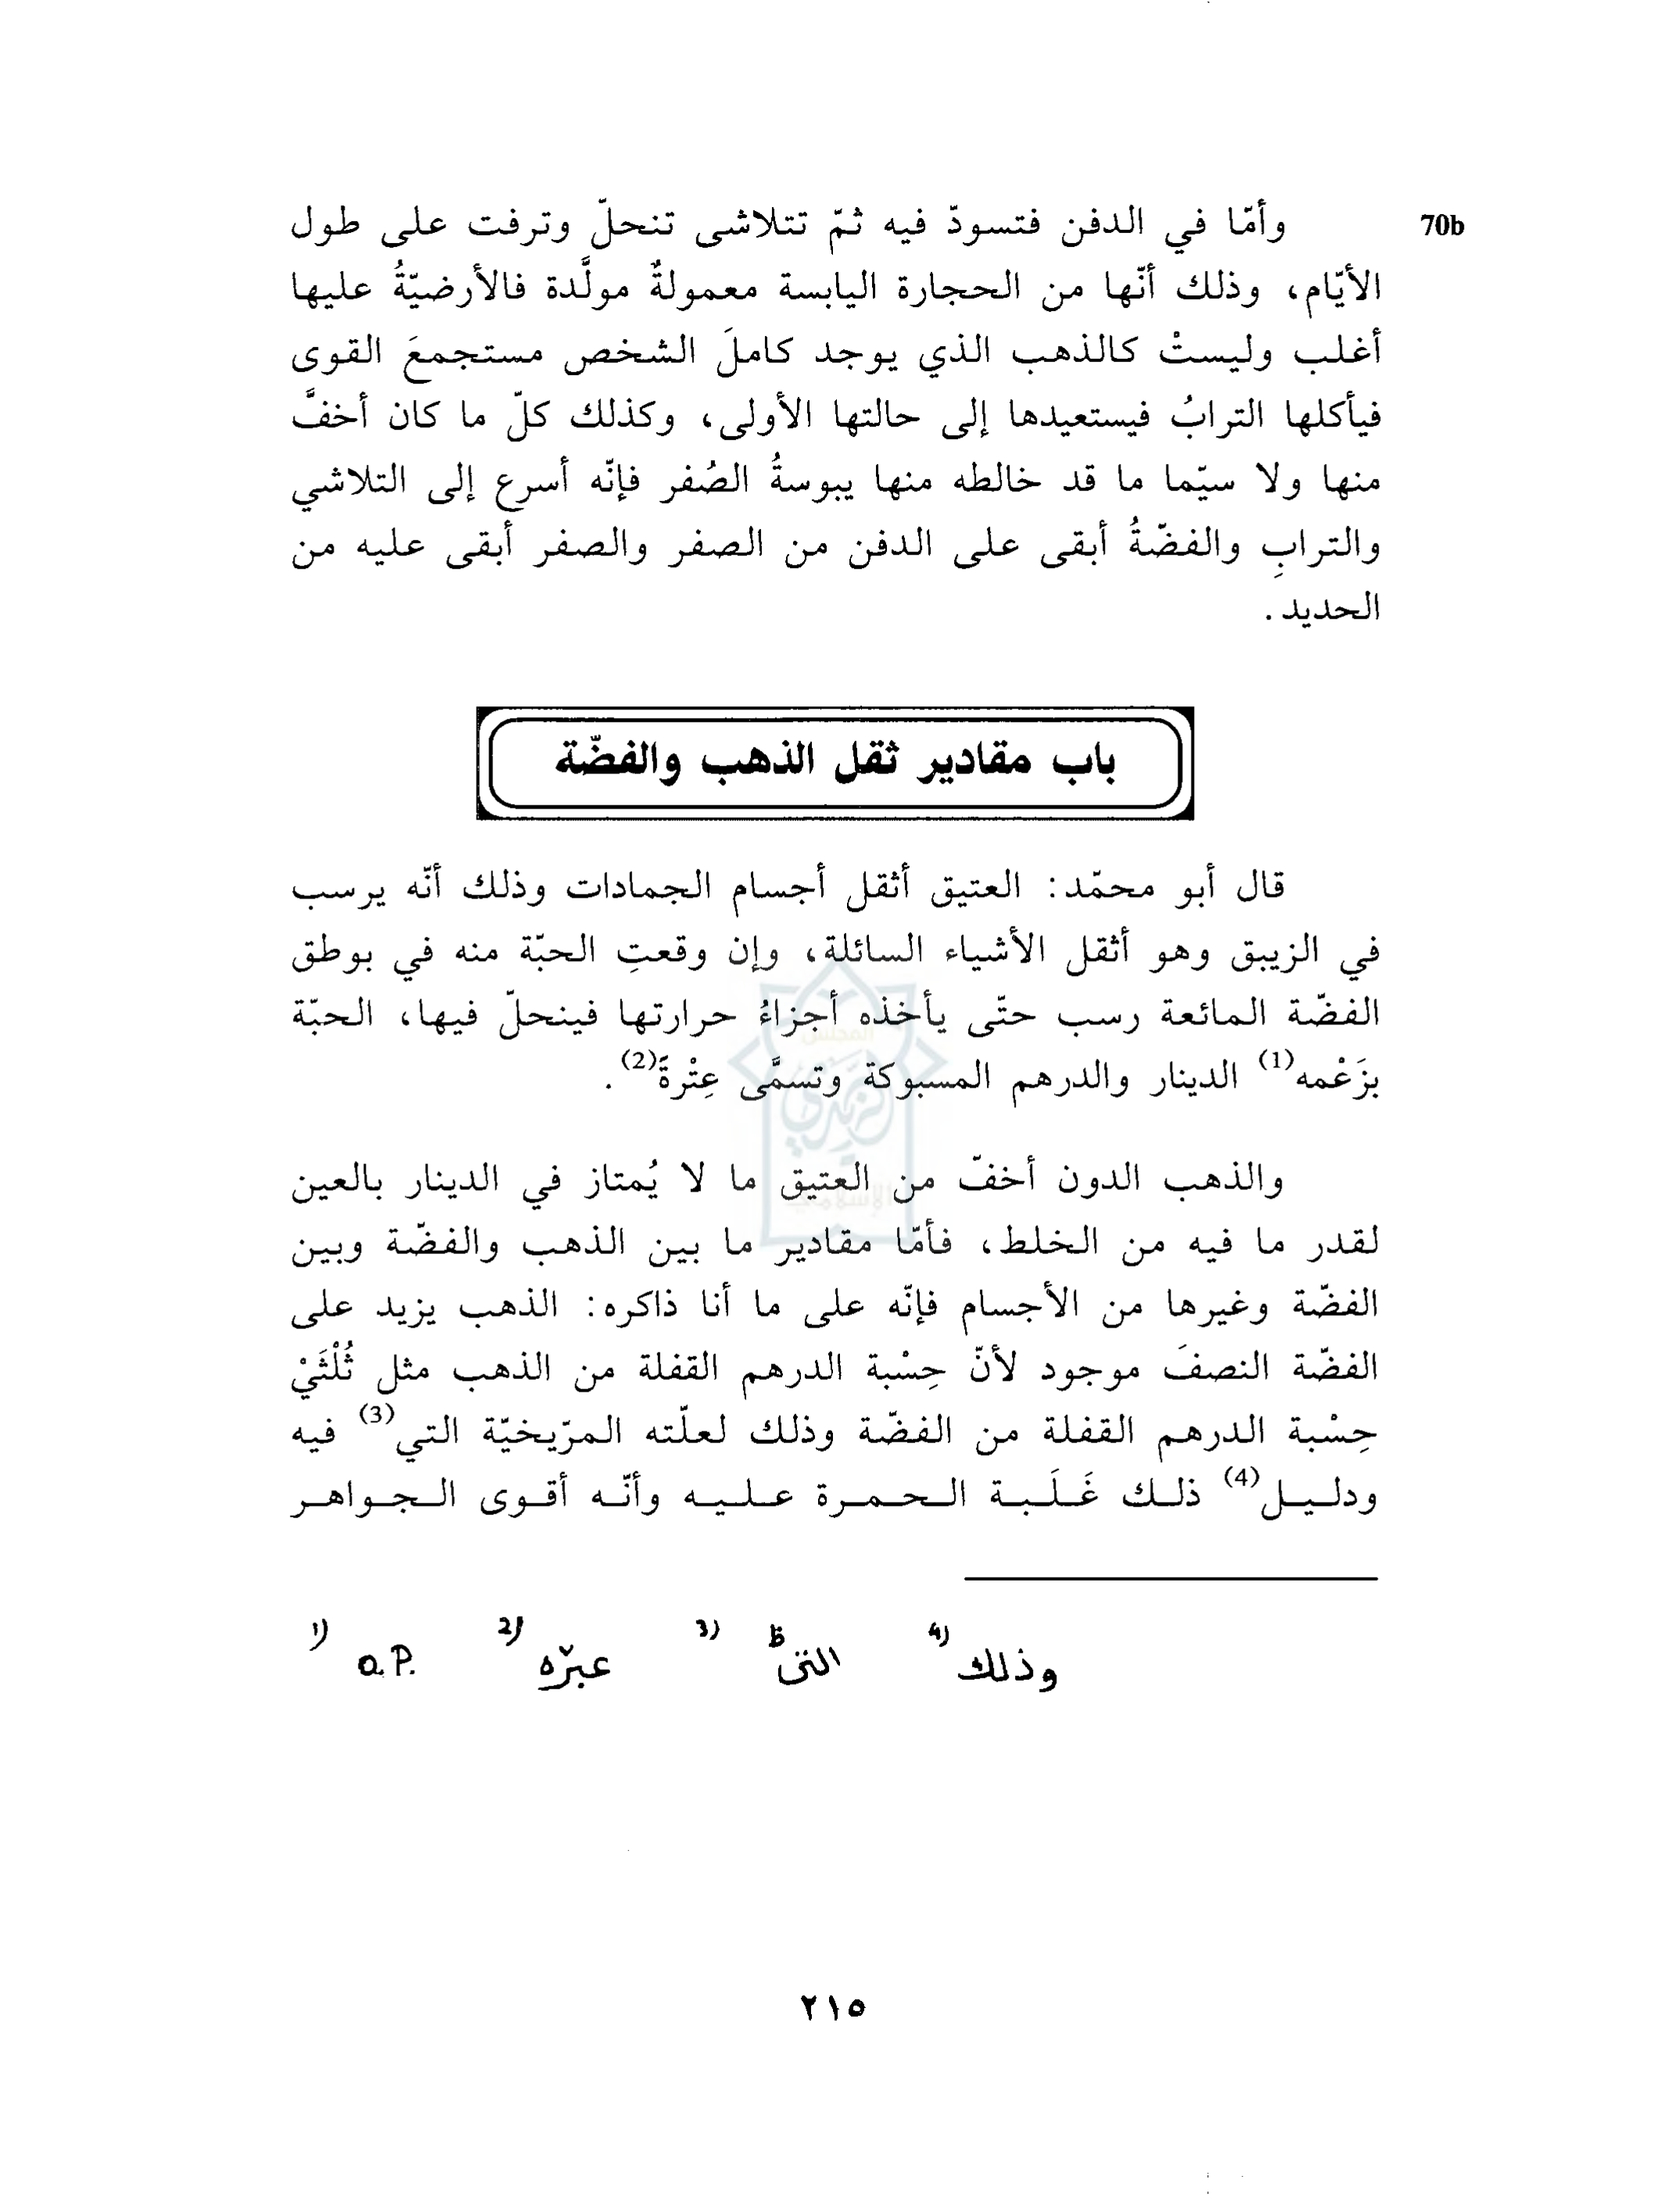 وأمّا في الدفن فتسودّ فيه ثمّ تتلاشى تنحلّ وترفت على طول 70b
الأيّام، وذلك أنّها من الحجارة اليابسة معمولةٌ مولَّدة فالأرضيّةُ عليها
أغلب وليستْ كالذهب الذي يوجد كاملَ الشخص مستجمعَ القوى
فيأكلها الترابُ فيستعيدها إلى حالتها الأولى، وكذلك كلّ ما كان أخفَّ
منها ولا سيّما ما قد خالطه منها يبوسةُ الصُفر فإنّه أسرع إلى التلاشي
والترابِ والفضّةُ أبقى على الدفن من الصفر والصفر أبقى عليه من
الحديد.
باب مقادير ثقل الذهب والفضّة
قال أبو محمّد: العتيق أثقل أجسام الجمادات وذلك أنّه يرسب
في الزيبق وهو أثقل الأشياء السائلة، وإن وقعتِ الحبّة منه في بوطق
الفضّة المائعة رسب حتّى يأخذه أجزاءُ حرارتها فينحلّ فيها، الحبّة
بزَعْمه(1) الدينار والدرهم المسبوكة وتسمَّى عِتْرةً(2).
والذهب الدون أخفّ من العتيق ما لا يُمتاز في الدينار بالعين
لقدر ما فيه من الخلط، فأمّا مقادير ما بين الذهب والفضّة وبين
الفضّة وغيرها من الأجسام فإنّه على ما أنا ذاكره: الذهب يزيد على
الفضّة النصفَ موجود لأنّ حِسْبة الدرهم القفلة من الذهب مثل ثُلْثَيْ
حِسْبة الدرهم القفلة من الفضّة وذلك لعلّته المرّيخيّة التي(3) فيه
ودليل(4) ذلك غَلَبة الحمرة عليه وأنّه أقوى الجواهر
1) o.P. 2) عبرّه 3) التى 4) وذلك
٢١٥
المجلس
الزيدي
الإسلامي